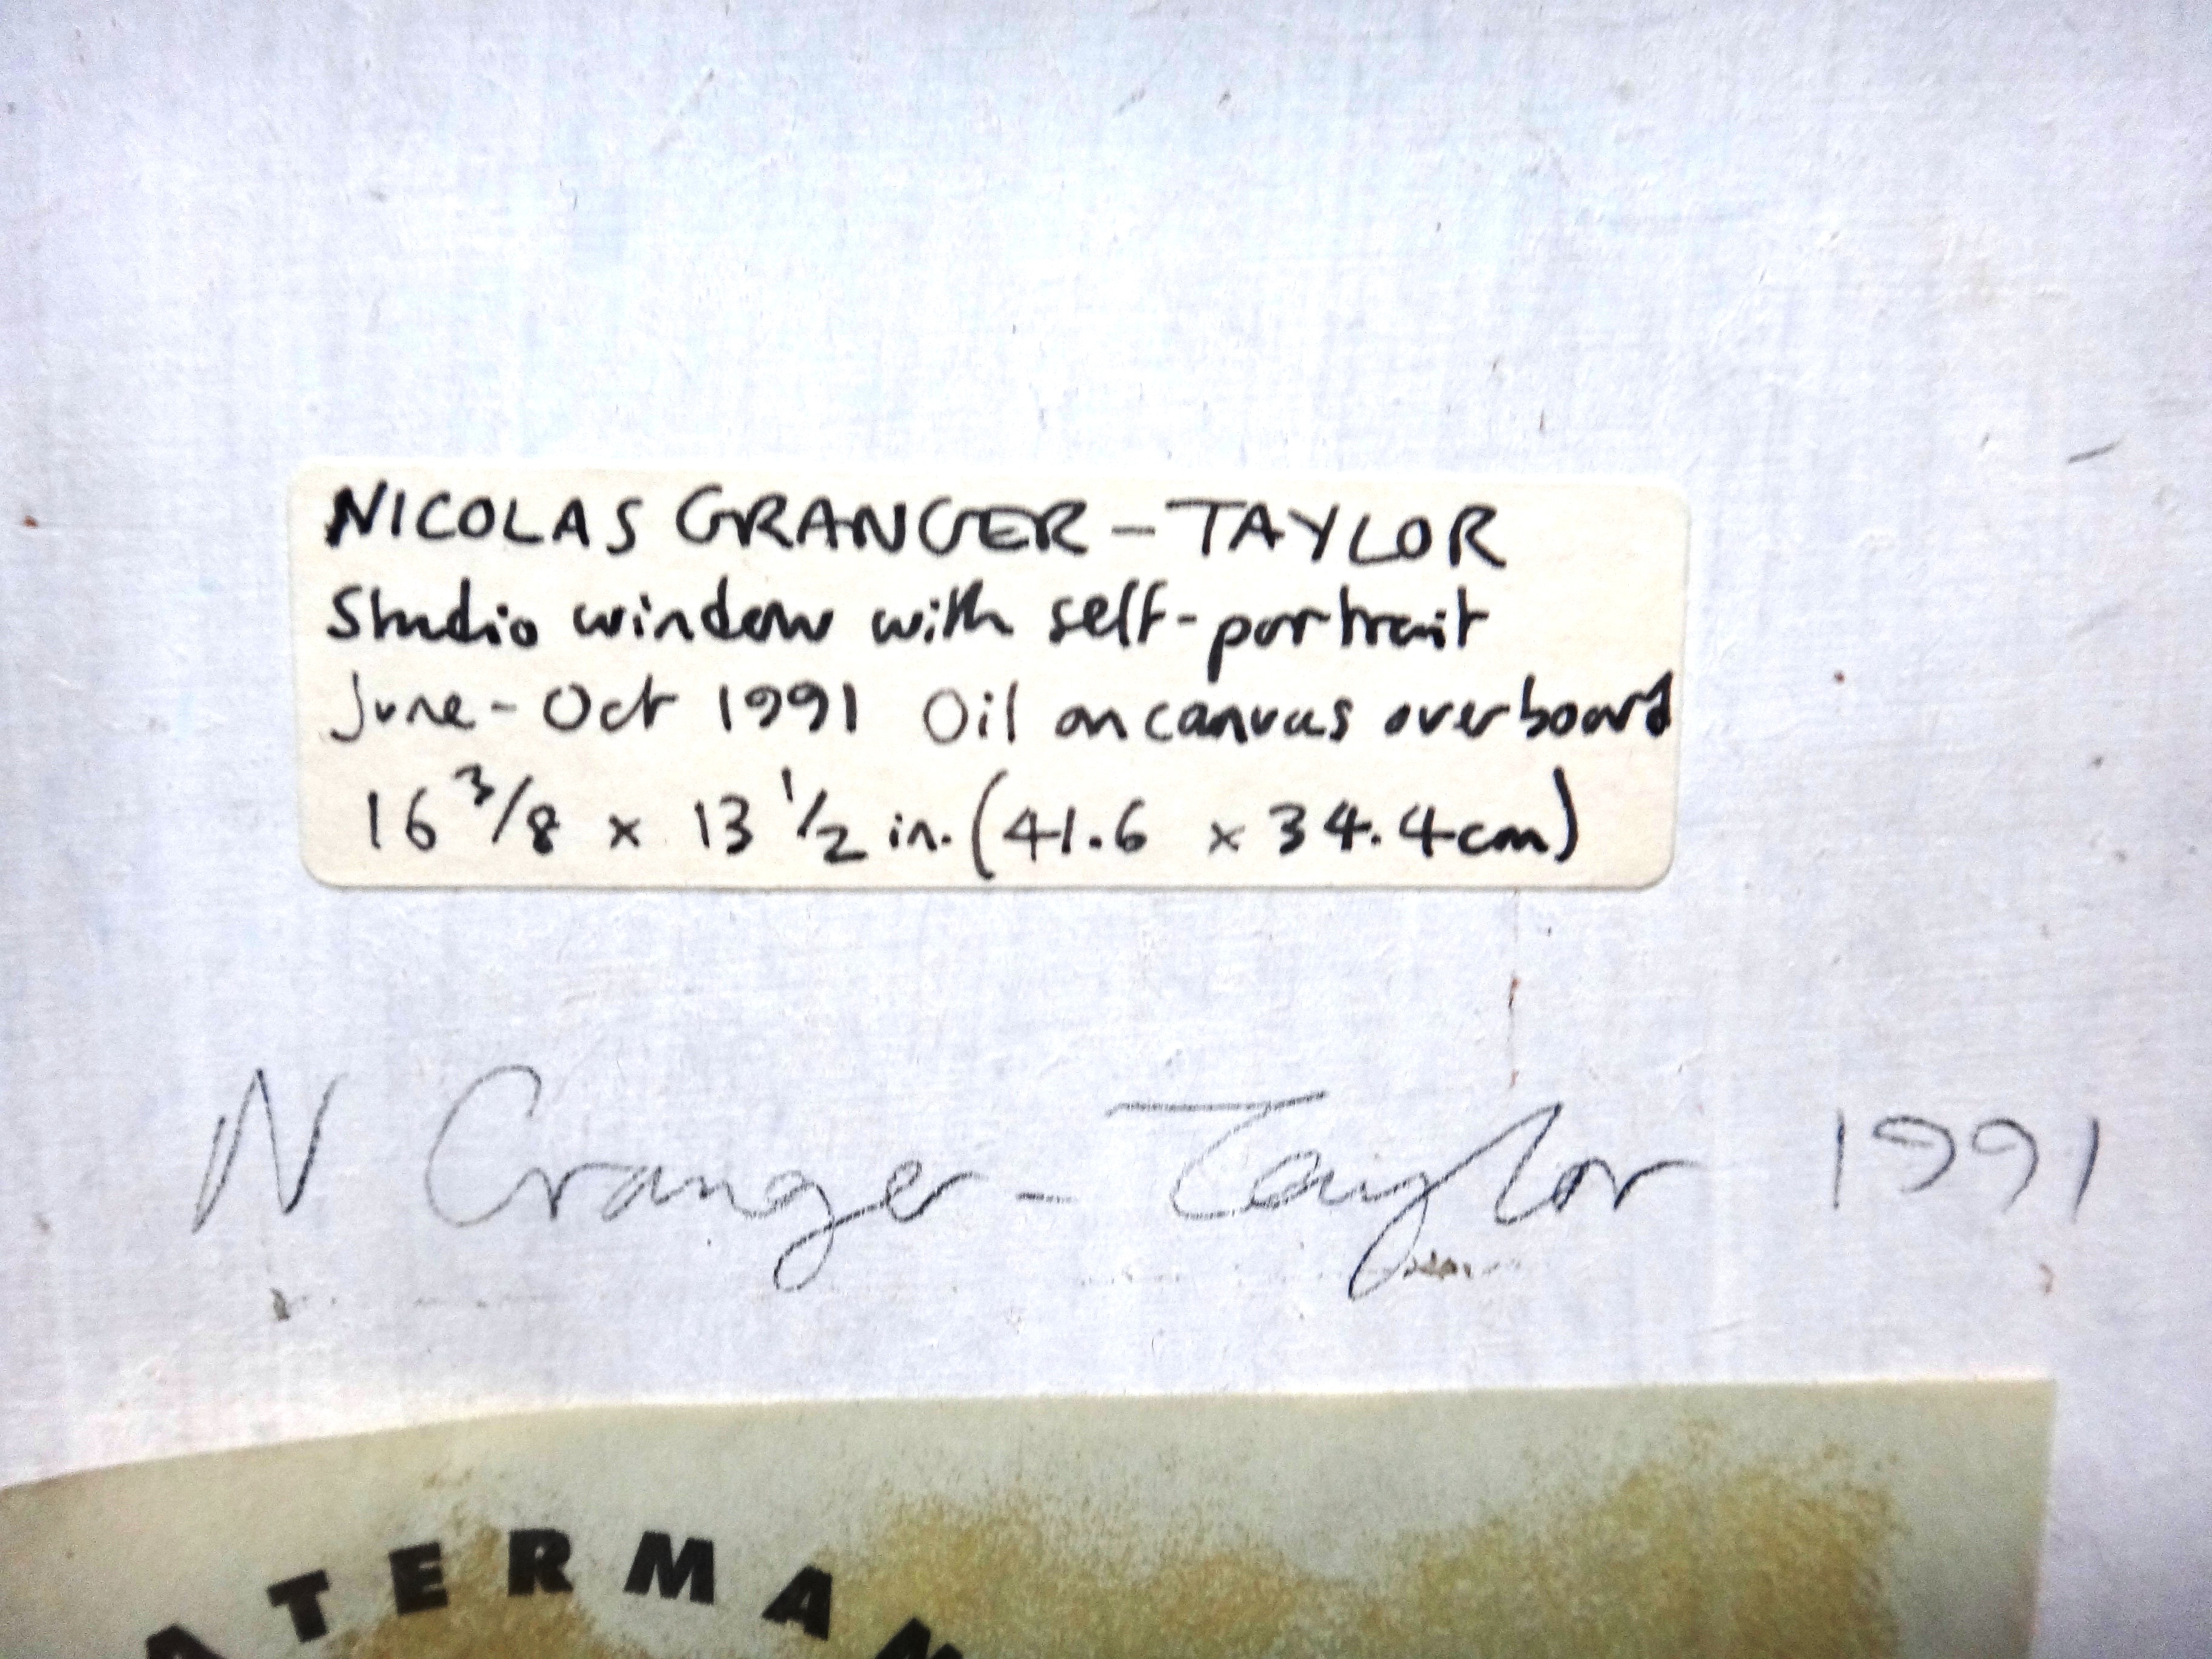 NICOLAS GRANGER-TAYLOR
Studio window with self-portrait
June-Oct 1991 Oil on canvas over board
16 3/8 x 13 1/2 in. (41.6 x 34.4cm)
N Granger-Taylor 1991
ATERMAN